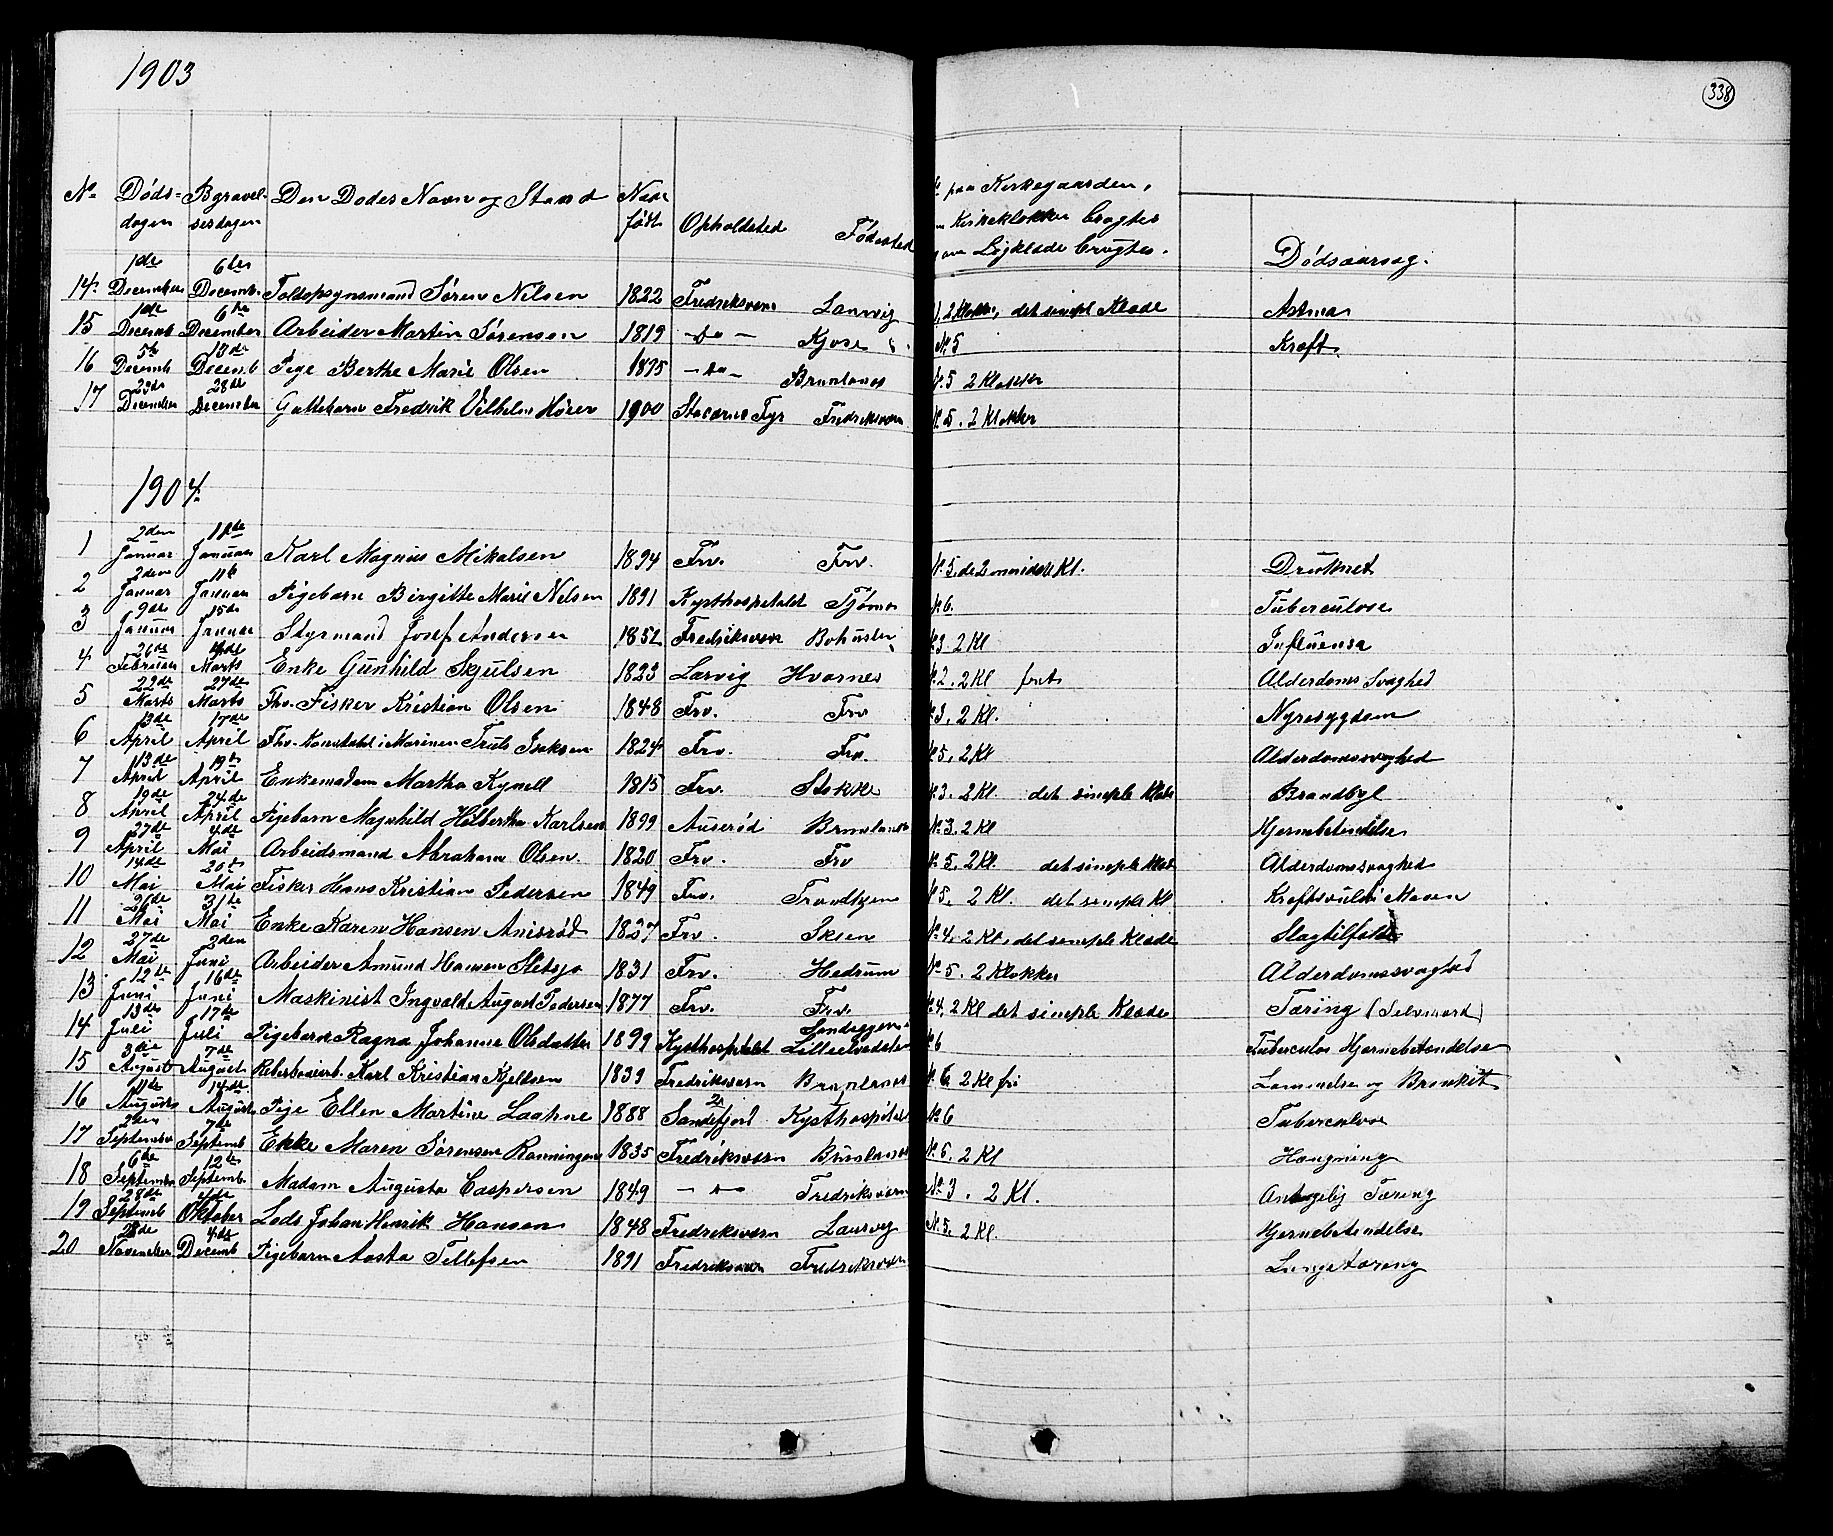 1903
338
No Døds- Bgravel- Den Dødes Navn og Stand Naar No paa Kirkegaarden,
dagen sesdagen født Opholdsted Fødested Kirkeklokker brugtes
Ligklæde brugtes. Dødsaarsag.
1de 6te
14 December Decemb. Toldopsynsmand Søren Nilsen 1822 Fredriksværn Laurvig 2 Klokker, det simple Klæde Astma
1de 6te
15 Decemb December Arbeider Martin Sørensen 1819 -do- Kjose No 5 Kræft
5te 10de
16 Decemb Decemb Pige Berthe Marie Olsen 1895 -do- Brunlanes No. 5 2 Klokker
23de 28de
17 December December Guttebarn Fredrik Vilhelm Høier 1900 Staværns Fyr Fredriksværn No. 5. 2 Klokker
1904.
2den 11de
1 Januar Januar Karl Magnus Mikalsen 1894 Frv. Frv. No. 5, de 2 mindste Kl. Druknet
2den 11te
2 Januar Januar Pigebarn Birgitte Marie Nelsen 1891 Kysthospitalet Tjømø No 6. Tuberculose
9de 15de
3 Januar Januar Styrmand Josef Andersen 1852 Fredriksværn Bohuslen No 3 2 Kl Influensa
26de 4de
4 Februar Marts Enke Gunhild Skjulsen 1823 Larvig Hvarnes No 2. 2 Kl frit Alderdoms Svaghed
22de 27de
5 Marts Marts Fhv. Fisker Kristian Olsen 1848 Frv. Frv No 3, 2 Kl. Nyresygdom
13de 17de
6 April April Fhv. Konstabel i Marinen Truls Isaksen 1824 Frv. Frv. No 5, 2 Kl Alderdomssvaghed
13de 19de
7 April April Enkemadam Martha Kynell 1815 Frv. Stokke No 3. 2 Kl. det simple Klæde Brandbyl
19de 24de
8 April April Pigebarn Magnhild Hilbertha Karlsen 1899 Auserød Brunlanes No 3. 2 Kl Hjernebetændelse
27de 4de
9 April Mai Arbeidsmand Abraham Olsen. 1820 Frv. Frv No 5. 2 Kl det simple Klæde Alderdomssvaghed
14de 20de
10 Mai Mai Fisker Hans Kristian Pedersen 1849 Frv. Trondhjem No 5. 2 Kl. det simple Kl Kræftsvulst i Maven
26de 31te
11 Mai Mai Enke Karen Hansen Anisrød 1837 Frv. No 4, 2 Kl, det simple Klæde Slagtilfælde
27de 2den
12 Mai Juni Arbeider Amund Hansen 1831 Frv. Hedrum No 5. 2 Klokker Alderdomssvaghed
12te 16de
13 Juni Juni Maskinist Ingvald August Pedersen 1877 Frv. Frv. No 4, 2 Kl det simple Klæde Tæring (Selvmord)
13de 17de
14 Juli Juli Pigebarn Ragna Johanne Olsdatter 1899 Kysthospitalet No 6 Tuberculos Hjernebetændelse
3die 7de
15 August August Karl Kristian Kjeldsen 1839 Fredriksværn Brunlanes No. 6, 2 Kl fri Lammelse og Bronkit
11te 14de
16 August August Pige Ellen Martine Laahne 1888 Sandefjord Kysthospitalet No 6 Tuberculose
2den 7de
17 September Septemb Enke Maren Sørensen Ronningen 1835 Fredriksværn Brunlanes No. 6. 2 Kl Hængning
6te 12te
18 September Septemb Madam Augusta Caspersen 1849 -do- Fredriksværn No 3. 2 Kl. Tæring
28de 4de
19 Septemb Oktober Lods Johan Henrik Hansen 1848 Fredriksværn Laurvig No. 5. 2 Kl. Hjernebetændelse
28de 4de
20 November Decemb Pigebarn Aasta Tellefsen 1891 Fredriksværn Fredriksværn Lungetæring